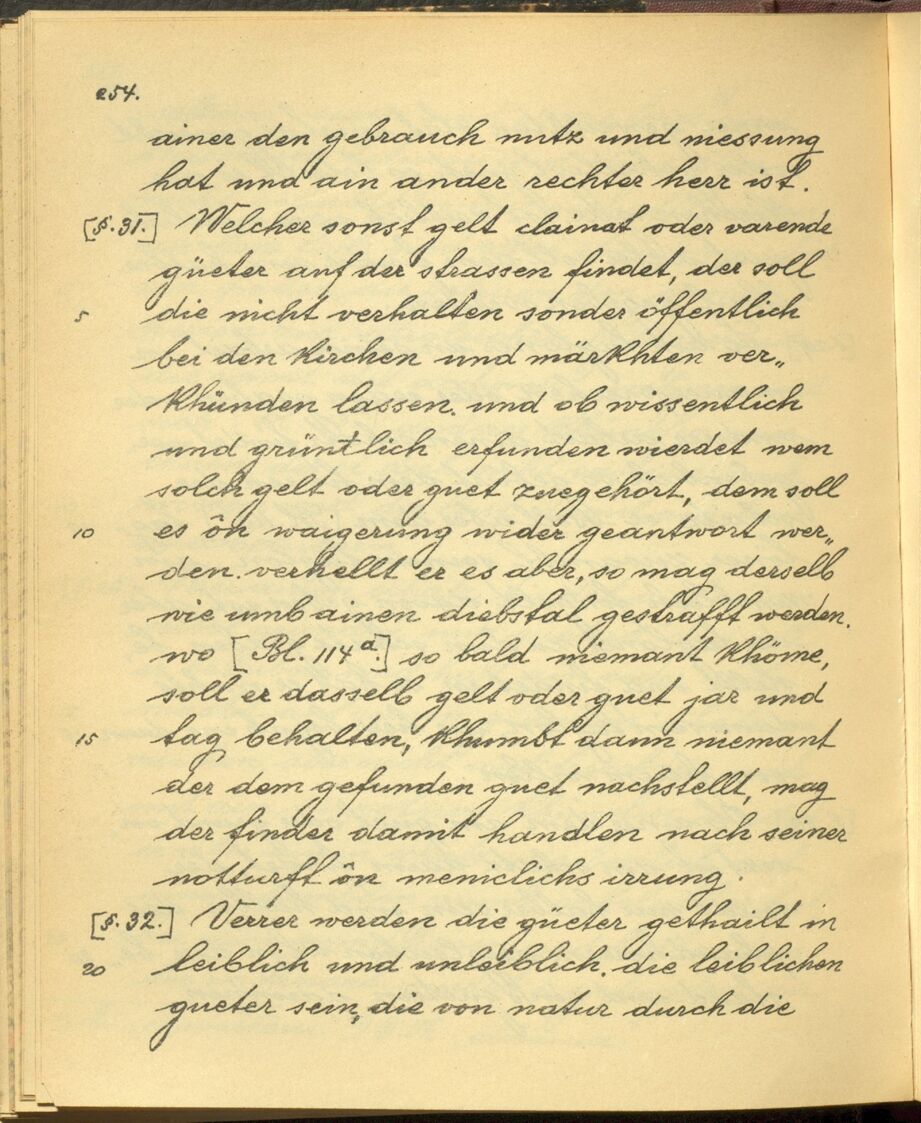 254.
ainer den gebrauch nutz und niessung
hat und ain ander rechter herr ist.
[§.31.] Welcher sonst gelt clainat oder varende
güeter auf der strassen findet, der soll
5 die nicht verhalten sonder öffentlich
bei den kirchen und märkhten ver„
khünden lassen. und ob wissentlich
und grüntlich erfunden wierdet wem
solch gelt oder guet zuegehört, dem soll
10 es ôn waigerung wider geantwort wer„
den. verhellt er es aber, so mag derselb
wie umb ainen diebstal gestrafft werden.
wo [Bl. 114a.] so bald niemant khöme,
soll er dasselb gelt oder guet jar und
15 tag behalten, khumbt dann niemant
der dem gefunden guet nachstellt, mag
der finder damit handlen nach seiner
notturfft ôn meniclichs irrung.
[§.32.] Verrer werden die güeter gethailt in
20 leiblich und unleiblich. die leiblichen
gueter sein, die von natur durch die